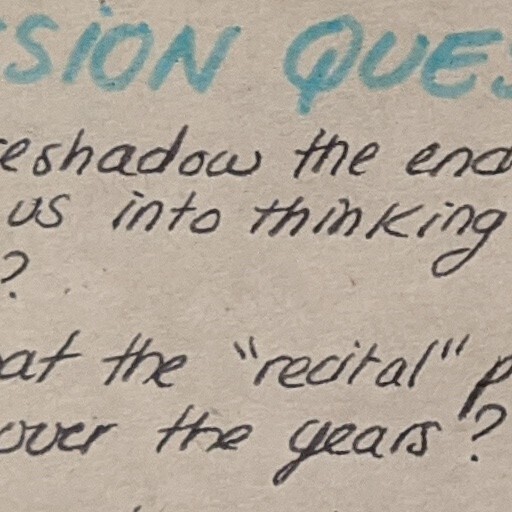 SSION QUES
reshadow the end
us into thinking
?
at the "recital" p
over the years?